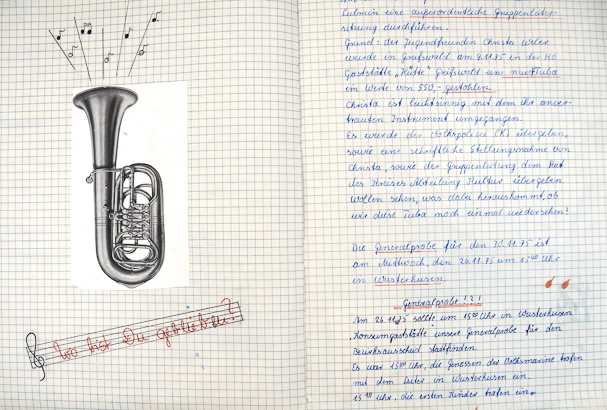 Wo bist Du geblieben?
Lubmin eine außerordentliche Gruppenleiter-
sitzung durchführen.
Grund: der Jugendfreundin Christa
wurde in Greifswald am 9.11.75 in der HO
Gaststätte „Hütte" Greifswald eine neue Tuba
im Werte von 550,- gestohlen.
Christa ist leichtsinnig mit dem ihr anver-
trauten Instrument umgegangen.
Es wurde der Volkspolizei (K) übergeben,
sowie eine schriftliche Stellungnahme von
Christa, sowie der Gruppenleitung dem Rat
des Kreises Abteilung Kultur übergeben.
Wollen sehen, was dabei herauskommt, ob
wir diese Tuba noch einmal wiedersehen!
Die Generalprobe für den 30.11.75 ist
am Mittwoch, den 26.11.75 um 15⁰⁰ Uhr
in Wusterhusen.
Generalprobe!?!
Am 26.11.75 sollte um 15⁰⁰ Uhr in Wusterhusen
„Konsumgaststätte" unsere Generalprobe für den
Bezirksausscheid stattfinden.
Es war 15⁰⁰ Uhr, die Genossen der Volksmarine trafen
mit dem Dieter in Wusterhusen ein.
Uhr, die ersten Kinder trafen ein.